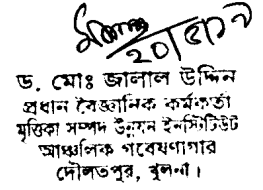 ড. মোঃ জালাল উদ্দিন
প্রধান বৈজ্ঞানিক কর্মকর্তা
মৃত্তিকা সম্পদ উন্নয়ন ইনস্টিটিউট
আঞ্চলিক গবেষণাগার
দৌলতপুর, খুলনা।